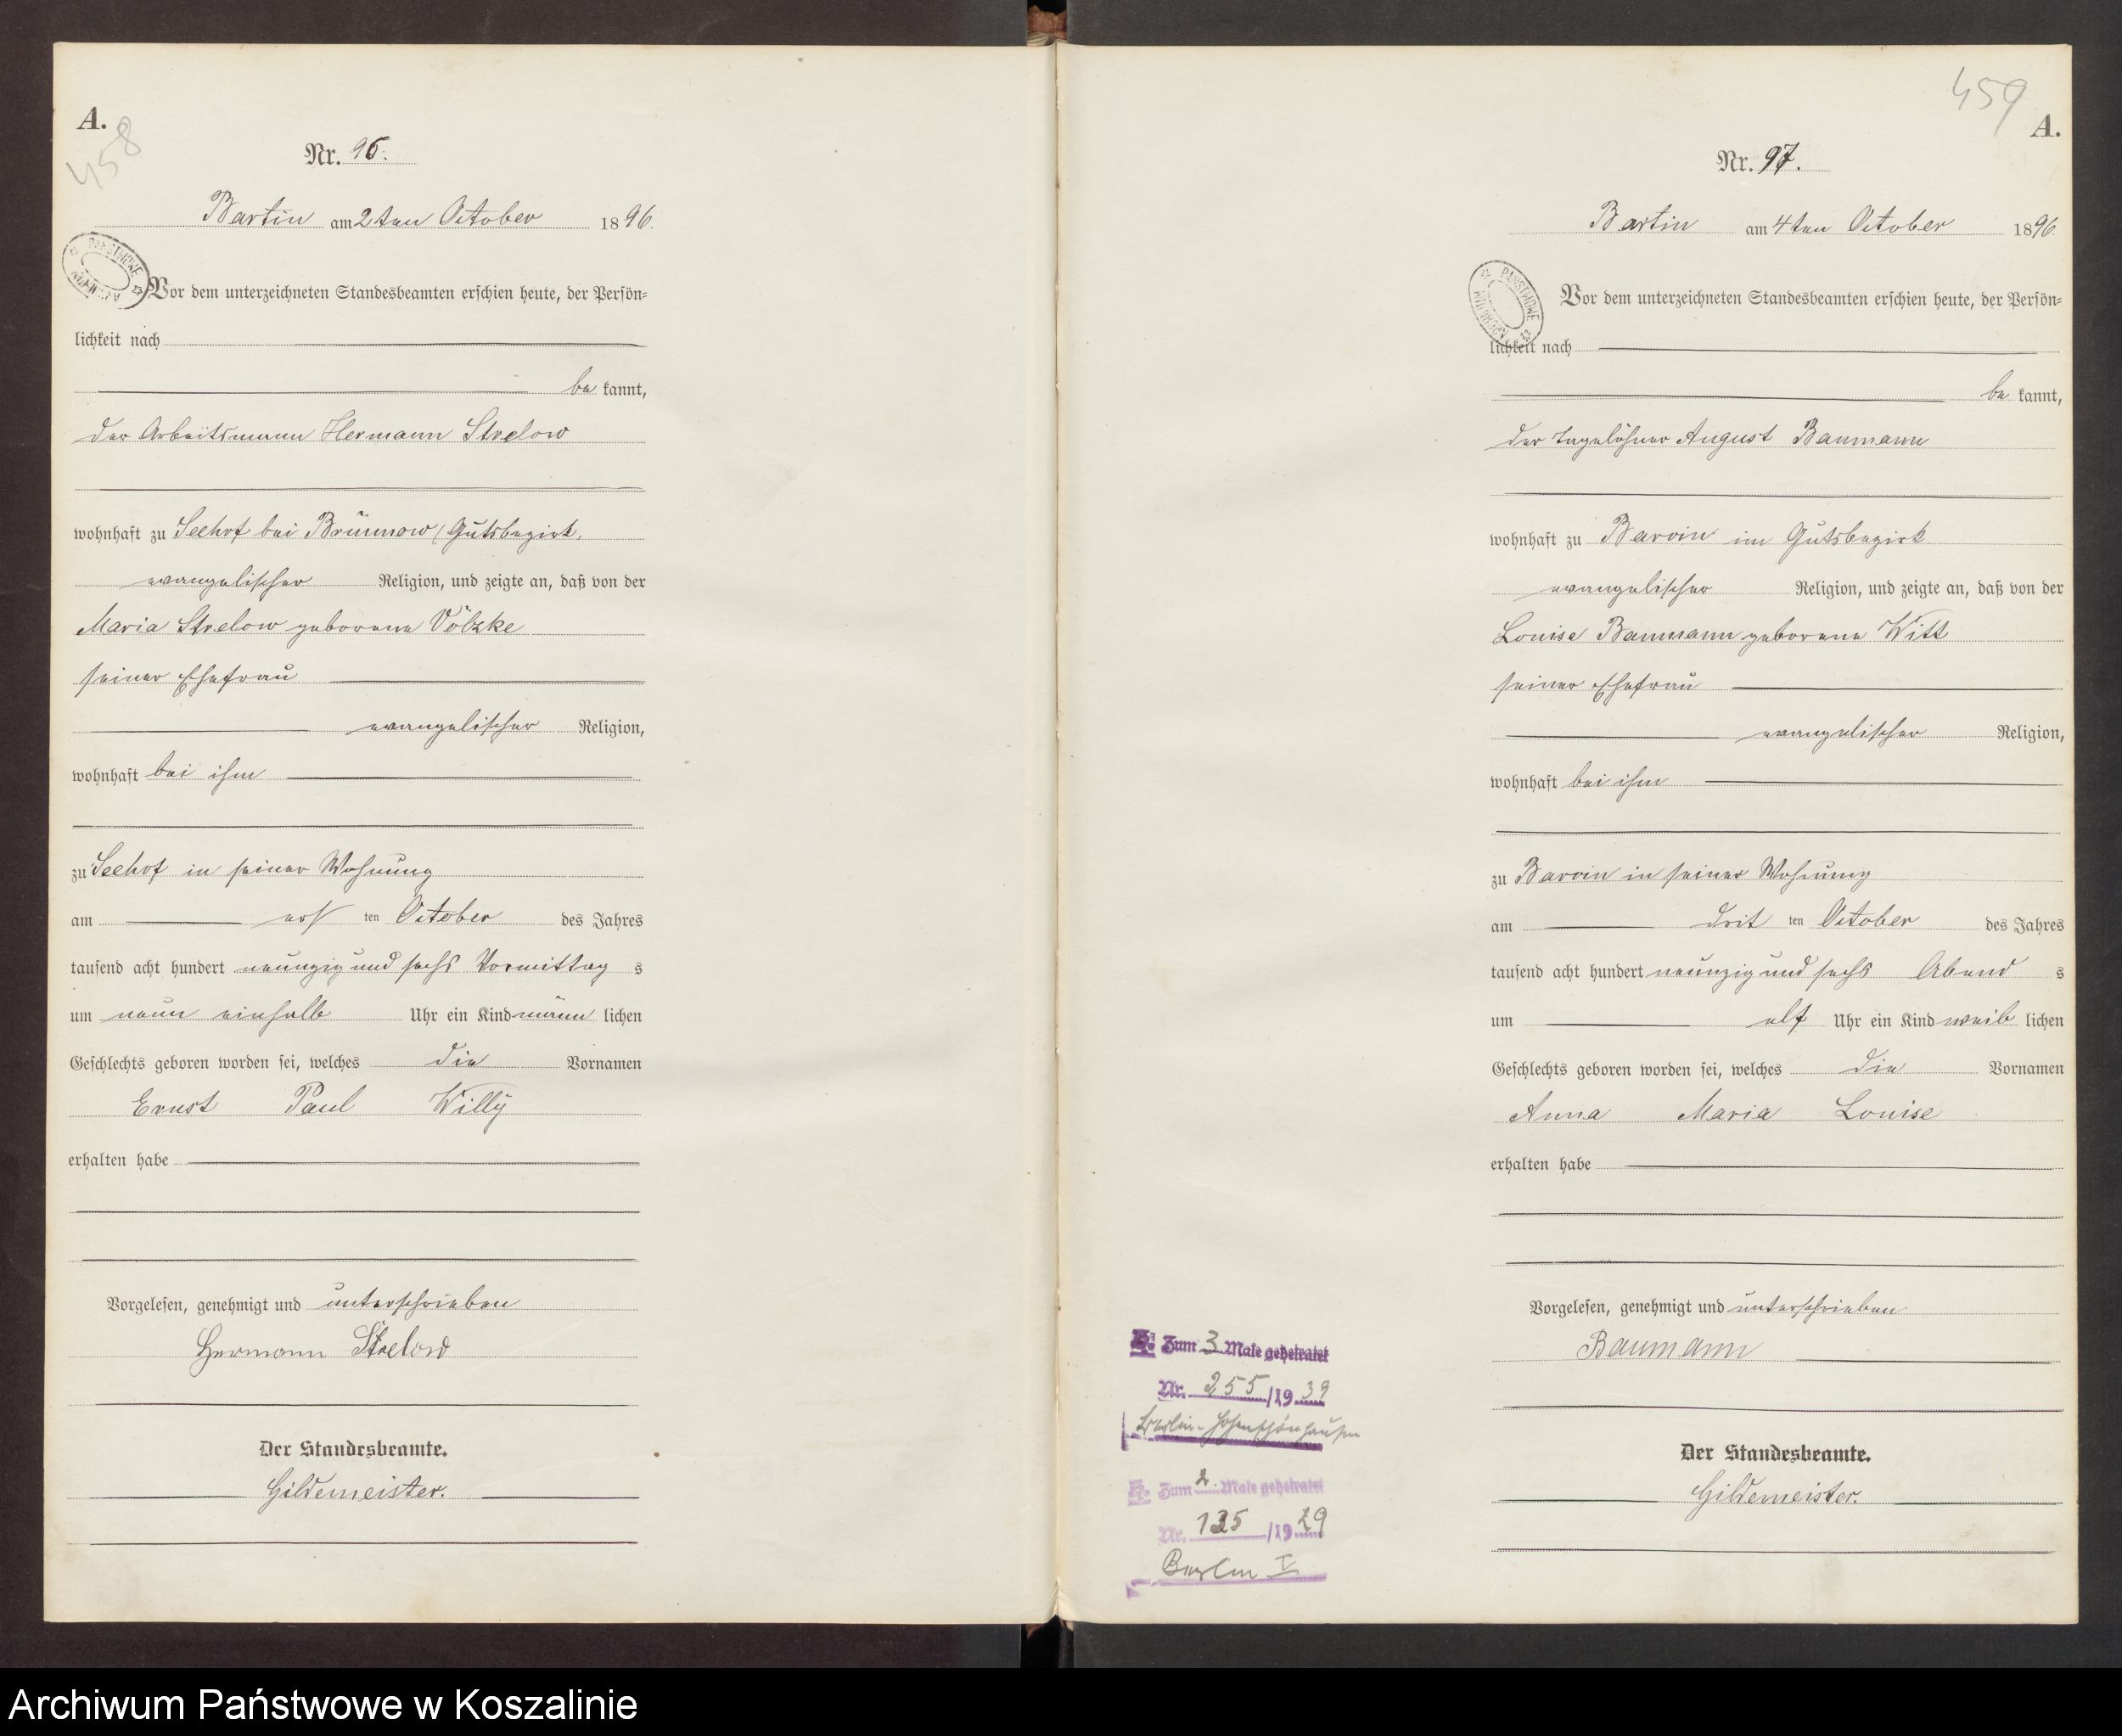 A.
458
Nr. 96.
Bartin am 2ten October 1896.
PAŃSTWOWE ARCHIWUM
Vor dem unterzeichneten Standesbeamten erschien heute, der Persön=
lichkeit nach
be kannt,
der Arbeitsmann Hermann Strelow
wohnhaft zu Seehof bei Brünnow (Gutsbezirk.
evangelischer Religion, und zeigte an, daß von der
Maria Strelow geborene Völzke
seiner Ehefrau
evangelischer Religion,
wohnhaft bei ihm
zu Seehof in seiner Wohnung
am ers ten October des Jahres
tausend acht hundert neunzig und sechs Vormittag s
um neun einhalb Uhr ein Kind männ lichen
Geschlechts geboren worden sei, welches die Vornamen
Ernst Paul Willy
erhalten habe
Vorgelesen, genehmigt und unterschrieben
Hermann Strelow
Der Standesbeamte.
Gildemeister.
459
A.
Nr. 97.
Bartin am 4ten October 1896.
PAŃSTWOWE ARCHIWUM
Vor dem unterzeichneten Standesbeamten erschien heute, der Persön=
lichkeit nach
be kannt,
der Tagelöhner August Baumann
wohnhaft zu Barvin im Gutsbezirk
evangelischer Religion, und zeigte an, daß von der
Louise Baumann geborene Witt
seiner Ehefrau
evangelischer Religion,
wohnhaft bei ihm
zu Barvin in seiner Wohnung
am drit ten October des Jahres
tausend acht hundert neunzig und sechs Abend s
um elf Uhr ein Kind weib lichen
Geschlechts geboren worden sei, welches die Vornamen
Anna Maria Louise
erhalten habe
Vorgelesen, genehmigt und unterschrieben
Baumann
Der Standesbeamte.
Gildemeister.
Zum 3 Male geheiratet
Nr. 255/1939
Berlin-Hohenschönhausen
Zum 2. Male geheiratet
Nr. 125/1929
Berlin I
Archiwum Państwowe w Koszalinie